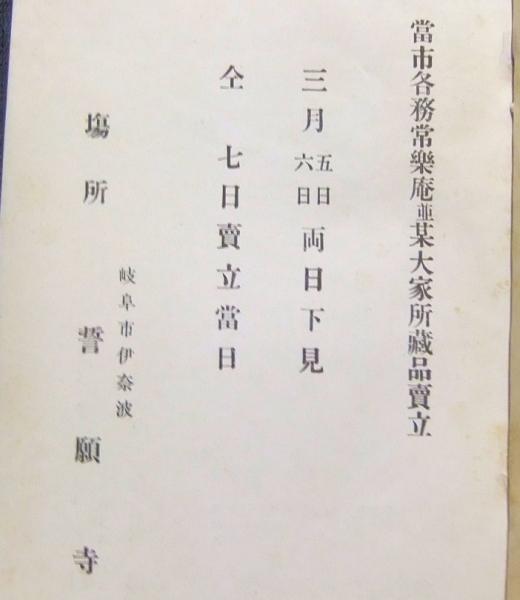 當市各務常樂庵並某大家所藏品賣立
三月五日六日両日下見
仝七日賣立當日
塲所
岐阜市伊奈波
誓願寺